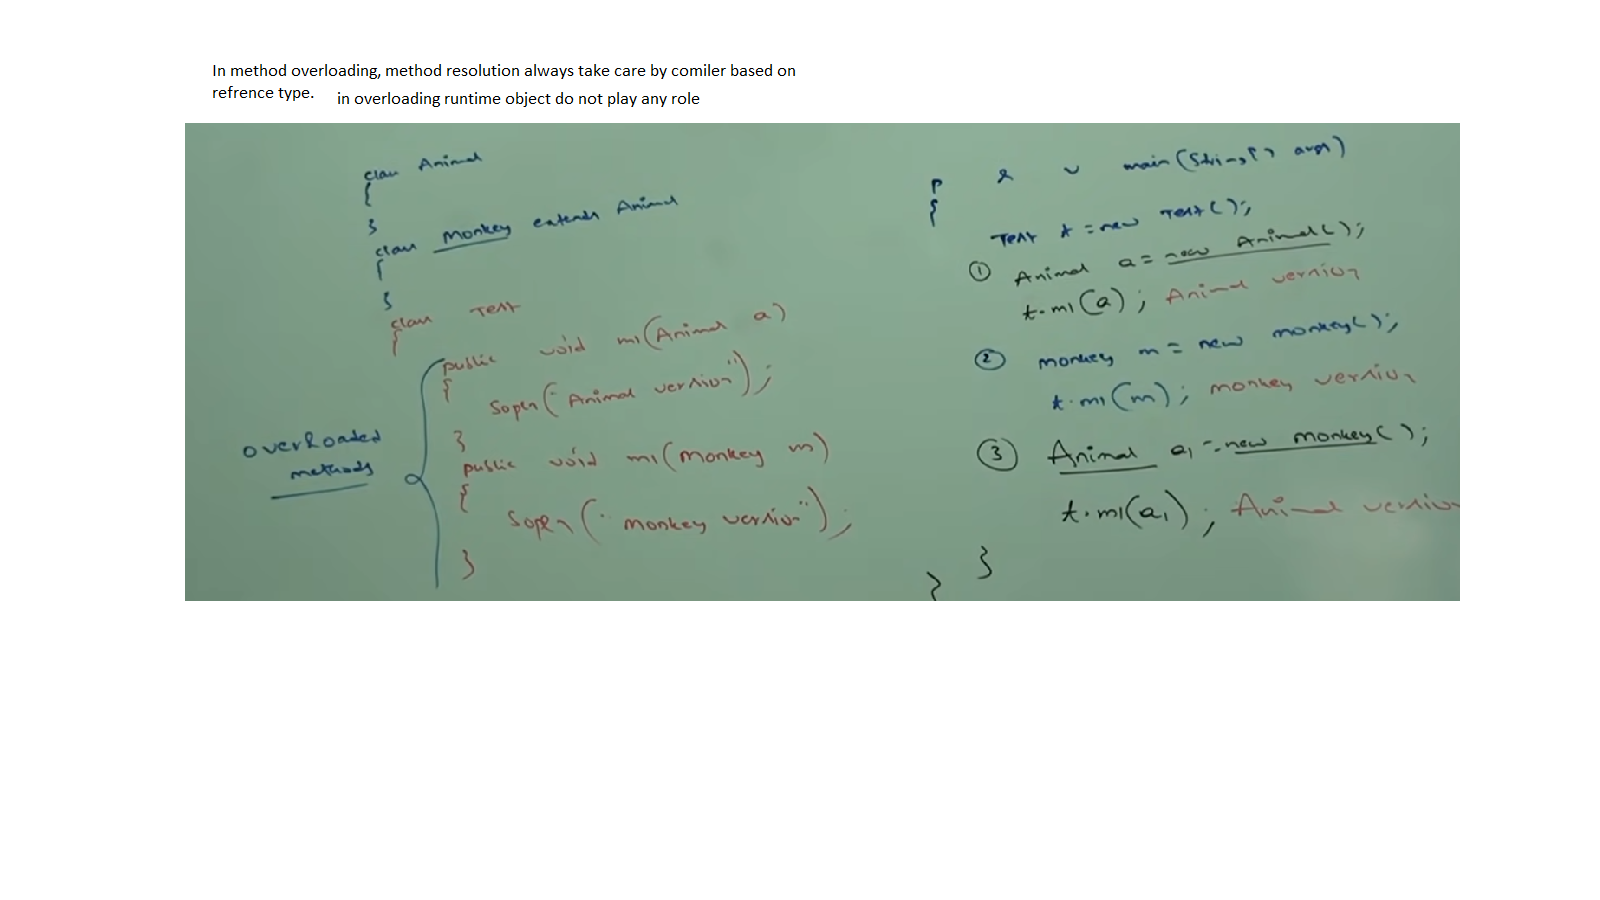 In method overloading, method resolution always take care by comiler based on
refrence type. in overloading runtime object do not play any role
class Animal
{
}
class monkey extends Animal
{
}
class Test
{
public void m1(Animal a)
{
Sopln("Animal version");
}
public void m1(monkey m)
{
Sopln("monkey version");
}
overloaded
methods
p s v main(String[] args)
{
Test t = new Test();
① Animal a = new Animal();
t.m1(a); Animal version
② monkey m = new monkey();
t.m1(m); monkey version
③ Animal a1 = new monkey();
t.m1(a1); Animal version
}
}